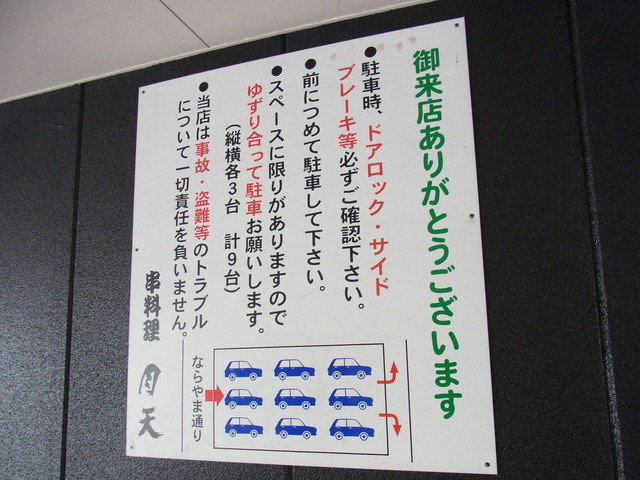 御来店ありがとうございます
●駐車時、ドアロック・サイド
ブレーキ等必ずご確認下さい。
●前につめて駐車して下さい。
●スペースに限りがありますので
ゆずり合って駐車お願いします。
（縦横各3台　計9台）
●当店は事故・盗難等のトラブル
について一切責任を負いません。
串料理 月天
ならやま通り